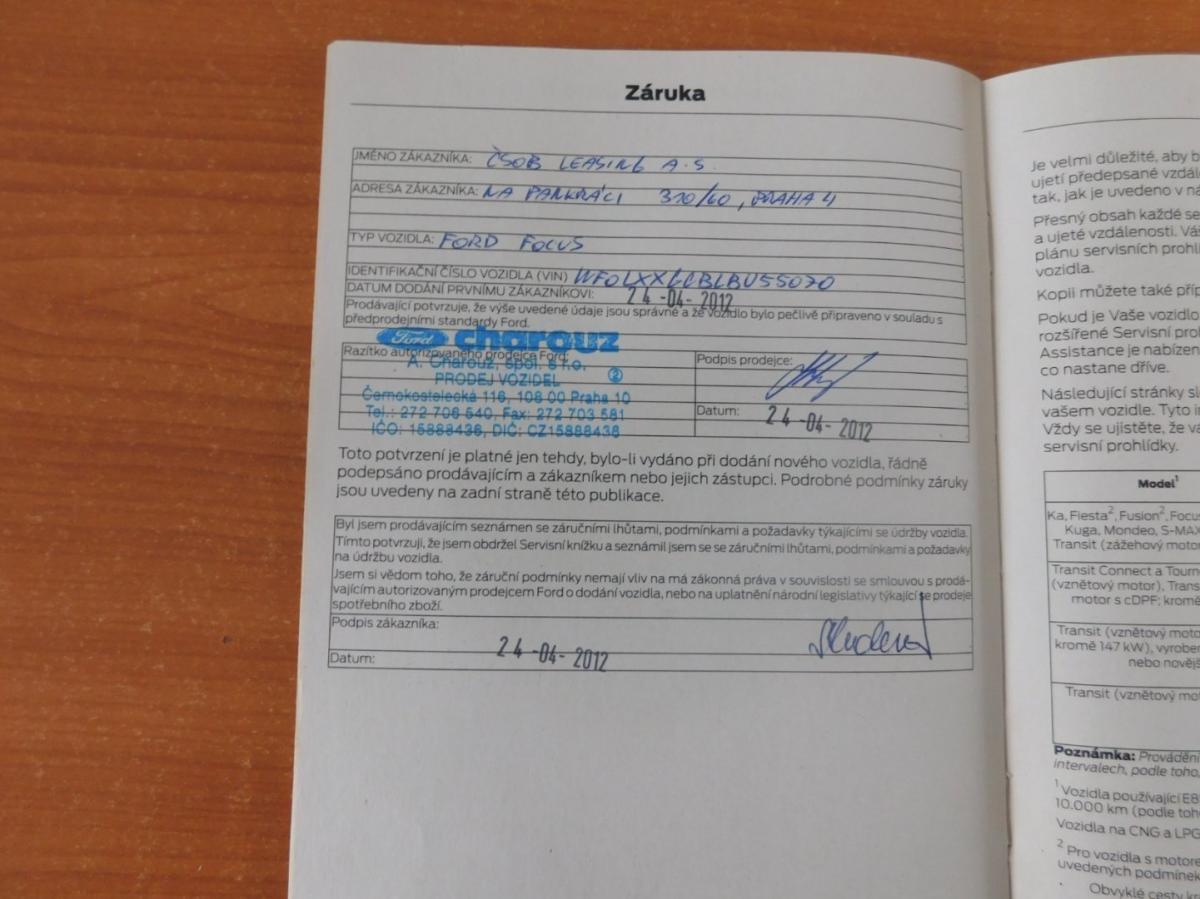 Záruka
JMÉNO ZÁKAZNÍKA: ČSOB LEASING A.S.
ADRESA ZÁKAZNÍKA: NA PANKRÁCI 310/60, PRAHA 4
TYP VOZIDLA: FORD FOCUS
IDENTIFIKAČNÍ ČÍSLO VOZIDLA (VIN) WF0LXXGCBLBU55070
DATUM DODÁNÍ PRVNÍMU ZÁKAZNÍKOVI: 24-04-2012
Prodávající potvrzuje, že výše uvedené údaje jsou správné a že vozidlo bylo pečlivě připraveno v souladu s
předprodejními standardy Ford.
Ford charouz
Razítko autorizovaného prodejce Ford:
A. Charouz, spol. s r.o.
PRODEJ VOZIDEL 2
Černokostelecká 116, 108 00 Praha 10
Tel.: 272 706 540, Fax: 272 703 581
IČO: 15888436, DIČ: CZ15888436
Podpis prodejce:
Datum: 24-04-2012
Toto potvrzení je platné jen tehdy, bylo-li vydáno při dodání nového vozidla, řádně
podepsáno prodávajícím a zákazníkem nebo jejich zástupci. Podrobné podmínky záruky
jsou uvedeny na zadní straně této publikace.
Byl jsem prodávajícím seznámen se záručními lhůtami, podmínkami a požadavky týkajícími se údržby vozidla.
Tímto potvrzuji, že jsem obdržel Servisní knížku a seznámil jsem se se záručními lhůtami, podmínkami a požadavky
na údržbu vozidla.
Jsem si vědom toho, že záruční podmínky nemají vliv na má zákonná práva v souvislosti se smlouvou s prodá-
vajícím autorizovaným prodejcem Ford o dodání vozidla, nebo na uplatnění národní legislativy týkající se prodeje
spotřebního zboží.
Podpis zákazníka:
Datum: 24-04-2012
Je velmi důležité, aby b
ujetí předepsané vzdále
tak, jak je uvedeno v ná
Přesný obsah každé se
a ujeté vzdálenosti. Váš
plánu servisních prohlí
vozidla.
Kopii můžete také příp
Pokud je Vaše vozidlo
rozšířené Servisní pro
Assistance je nabízen
co nastane dříve.
Následující stránky sl
vašem vozidle. Tyto i
Vždy se ujistěte, že vá
servisní prohlídky.
Model1
Ka, Fiesta2, Fusion2, Focus
Kuga, Mondeo, S-MAX
Transit (zážehový moto
Transit Connect a Tourn
(vznětový motor), Trans
motor s cDPF; kromě
Transit (vznětový moto
kromě 147 kW), vyrobe
nebo novějš
Transit (vznětový mot
Poznámka: Provádění
intervalech, podle toho,
1 Vozidla používající E8
10.000 km (podle toh
Vozidla na CNG a LPG
2 Pro vozidla s motore
uvedených podmínek
Obvyklé cesty kr